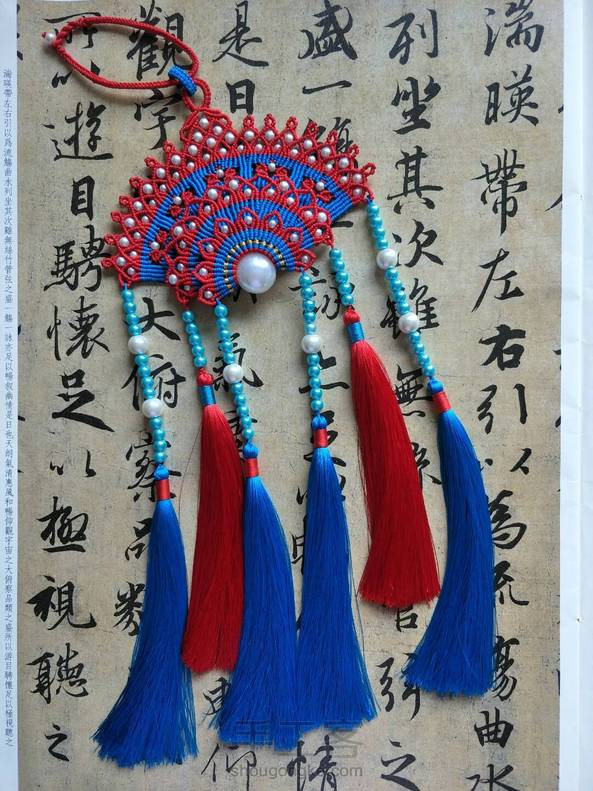 湍暎帶左右引以為流觴曲水
列坐其次雖無管弦之
盛一詠情
是日氣仰
觀宇大俯察品類
所以遊目騁懷足以極視聽之
湍暎帶左右引以爲流觴曲水列坐其次雖無絲竹管弦之盛一觴一詠亦足以暢敘幽情是日也天朗氣清惠風和暢仰觀宇宙之大俯察品類之盛所以游目騁懷足以極視聽之
手工客
shougongke.com